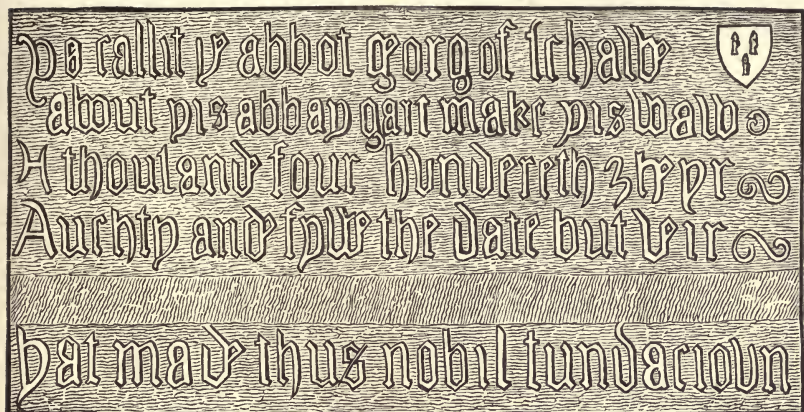 ya callit ye abbot georg of schawe
about yis abbay gart make yis waw
A thousande four hvndereth zheyr
Auchty ande fywe the date but veir
yat made thus nobil fundaciovn